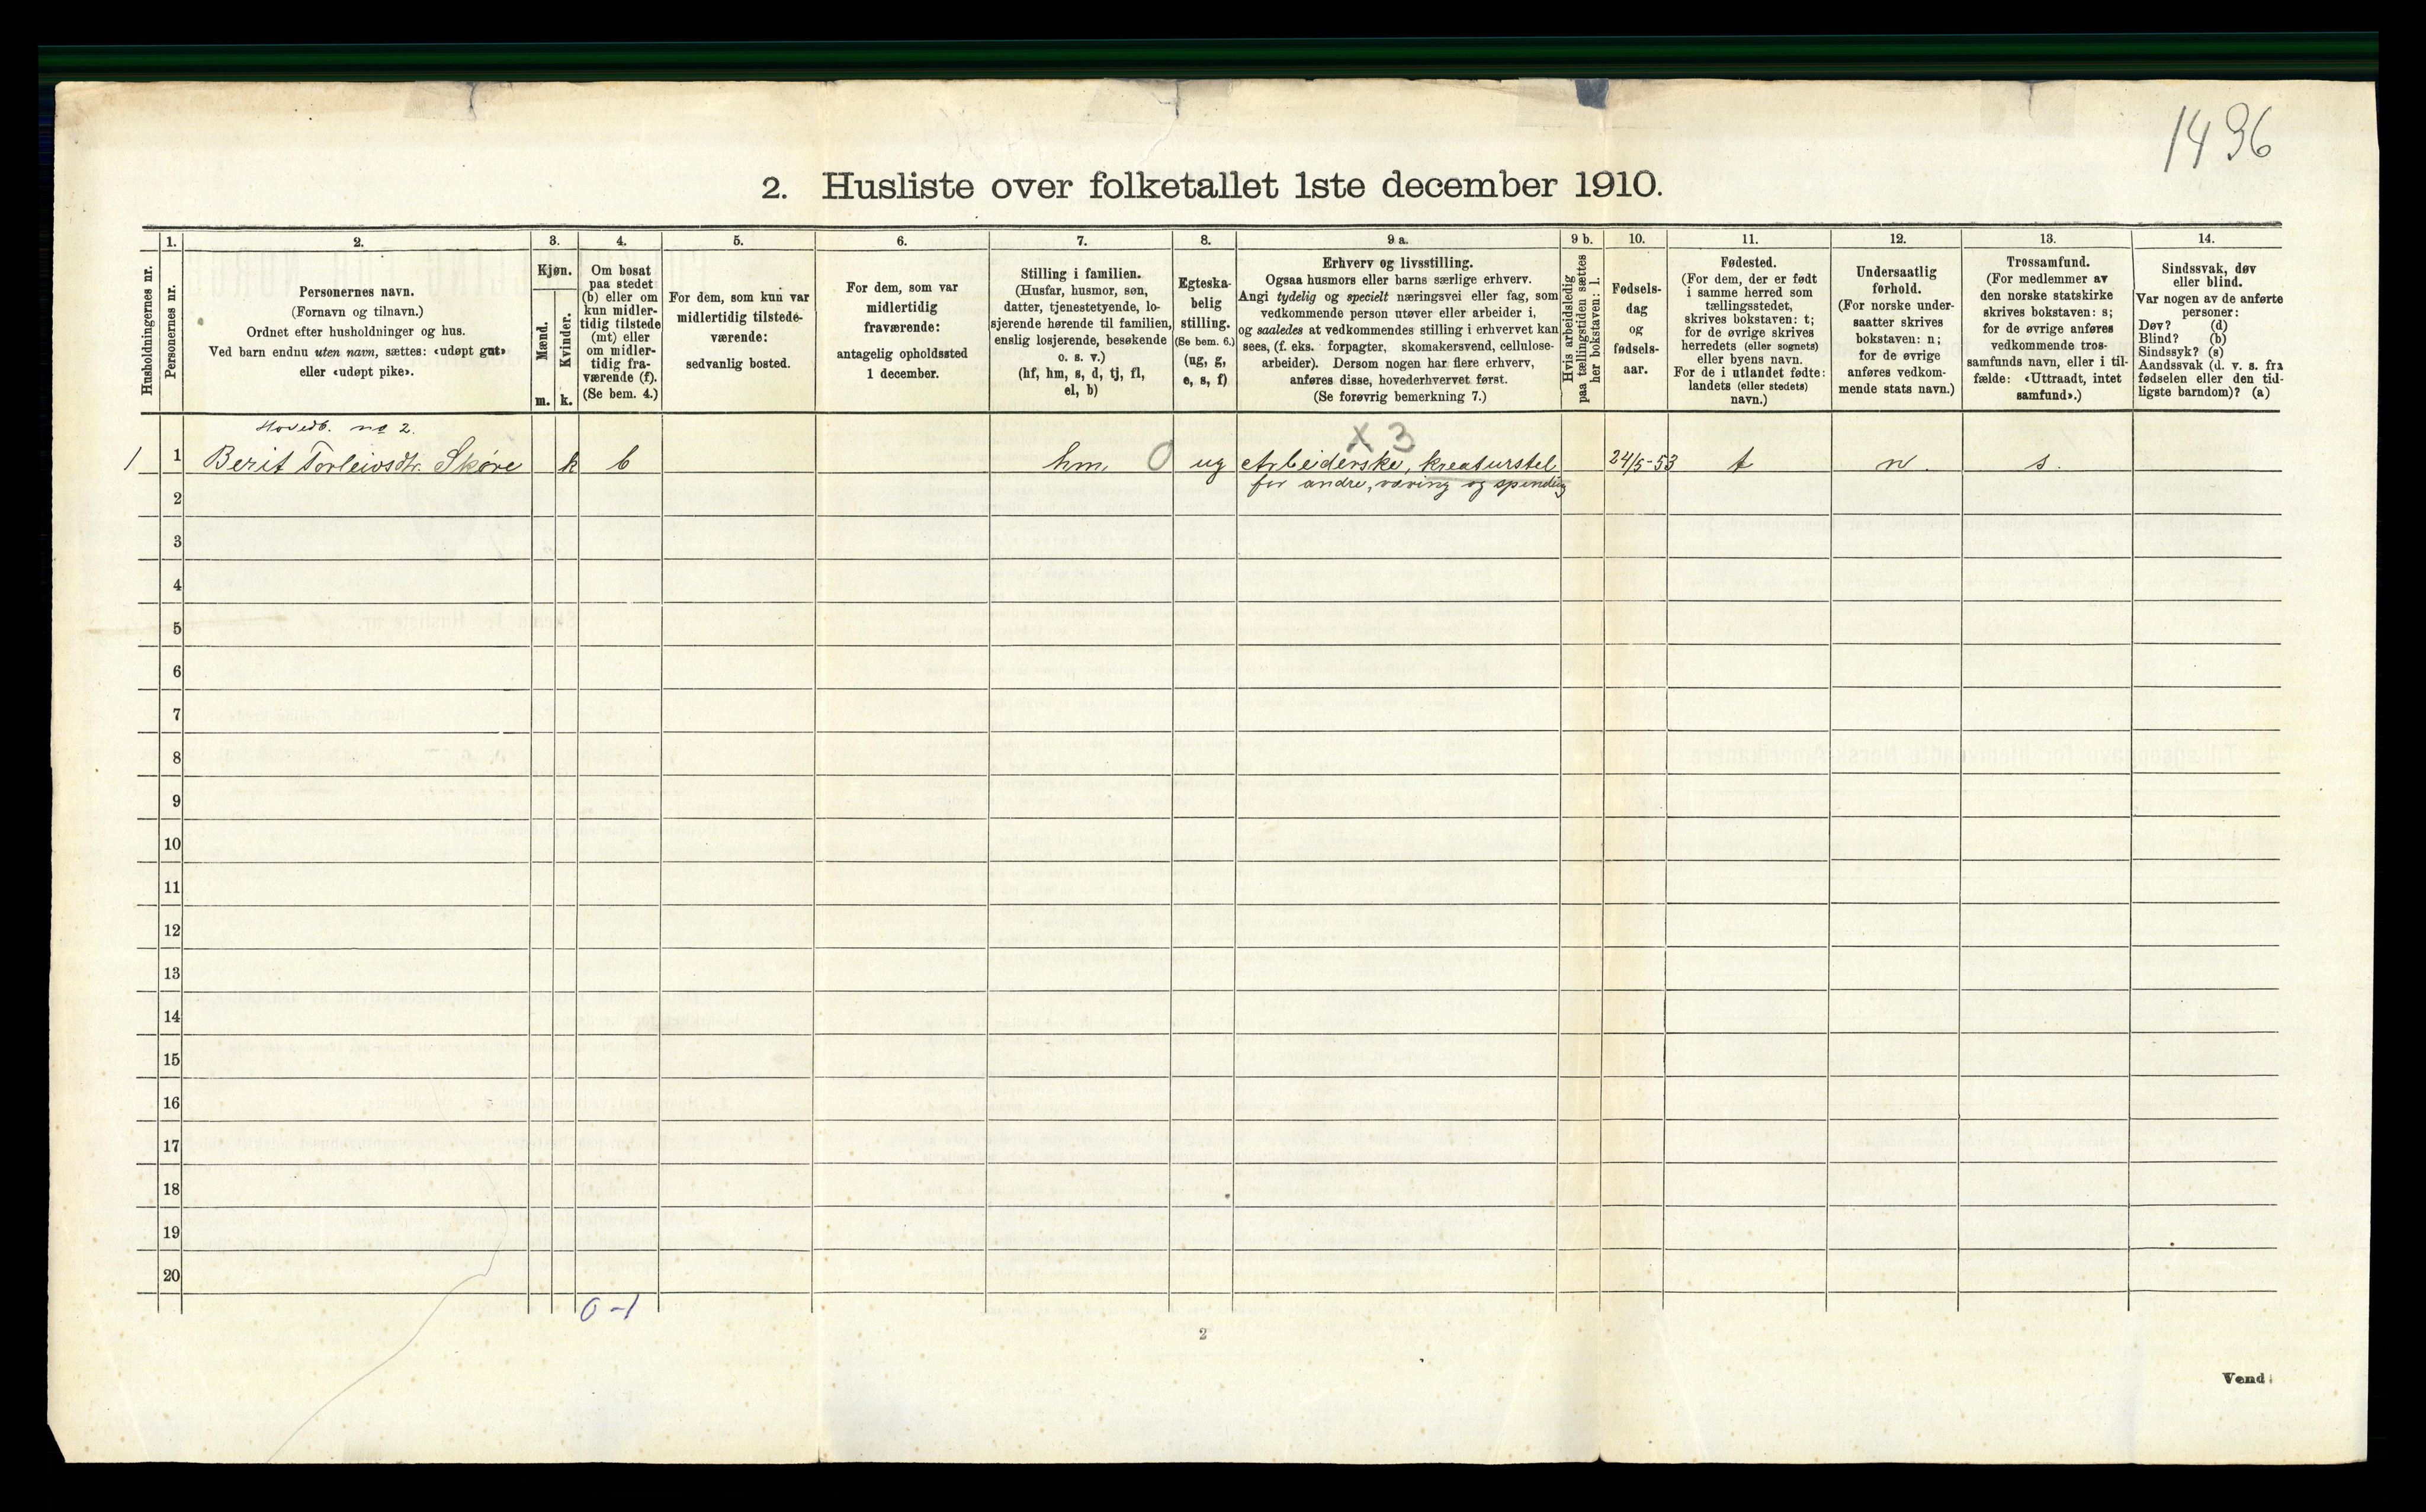 1496
2. Husliste over folketallet 1ste december 1910.
Husholdningernes nr.
1.
Personernes nr.
2.
Personernes navn.
(Fornavn og tilnavn.)
Ordnet efter husholdninger og hus.
Ved barn endnu uten navn, sættes: «udøpt gut»
eller «udøpt pike».
3.
Kjøn.
Mænd.
m.
Kvinder.
k.
4.
Om bosat
paa stedet
(b) eller om
kun midler-
tidig tilstede
(mt) eller
om midler-
tidig fra-
værende (f).
(Se bem. 4.)
5.
For dem, som kun var
midlertidig tilstede-
værende:
sedvanlig bosted.
6.
For dem, som var
midlertidig
fraværende:
antagelig opholdssted
1 december.
7.
Stilling i familien.
(Husfar, husmor, søn,
datter, tjenestetyende, lo-
sjerende hørende til familien,
enslig losjerende, besøkende
o. s. v.)
(hf, hm, s, d, tj, fl,
el, b)
8.
Egteska-
belig
stilling.
(Se bem. 6.)
(ug, g,
e, s, f)
9 a.
Erhverv og livsstilling.
Ogsaa husmors eller barns særlige erhverv.
Angi tydelig og specielt næringsvei eller fag, som
vedkommende person utøver eller arbeider i,
og saaledes at vedkommendes stilling i erhvervet kan
sees, (f. eks. forpagter, skomakersvend, cellulose-
arbeider). Dersom nogen har flere erhverv,
anføres disse, hovederhvervet først.
(Se forøvrig bemerkning 7.)
9 b.
Hvis arbeidsledig
paa tællingstiden sættes
her bokstaven: l.
10.
Fødsels-
dag
og
fødsels-
aar.
11.
Fødested.
(For dem, der er født
i samme herred som
tællingsstedet,
skrives bokstaven: t;
for de øvrige skrives
herredets (eller sognets)
eller byens navn.
For de i utlandet fødte:
landets (eller stedets)
navn.)
12.
Undersaatlig
forhold.
(For norske under-
saatter skrives
bokstaven: n;
for de øvrige
anføres vedkom-
mende stats navn.)
13.
Trossamfund.
(For medlemmer av
den norske statskirke
skrives bokstaven: s;
for de øvrige anføres
vedkommende tros-
samfunds navn, eller i til-
fælde: «Uttraadt, intet
samfund».)
14.
Sindssvak, døv
eller blind.
Var nogen av de anførte
personer:
Døv? (d)
Blind? (b)
Sindssyk? (s)
Aandssvak (d. v. s. fra
fødselen eller den tid-
ligste barndom)? (a)
Hovedb. no 2.
X 3
1 1 Berit Torleivsdtr. Skøre k b hm 0 ug Arbeiderske, kreaturstel 24/5-53 t n. s.
for andre, væving og spinding
2
3
4
5
6
7
8
9
10
11
12
13
14
15
16
17
18
19
20
0-1
2
Vend!